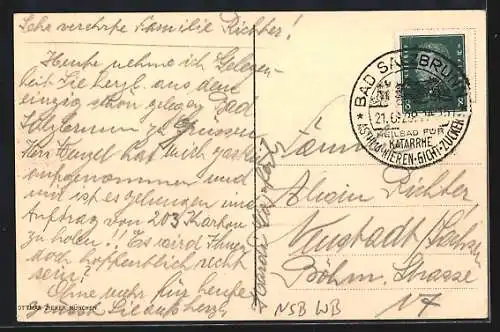 Sehr verehrte Familie Richter!
Heute nehme ich Gelegen-
heit Sie herzl. aus dem
einzig schön gelegen Bad
Salzbrunn zu Grüssen.
Herr hat mich
aufgenommen und
und ist es gelungen
Auftrag von 203 Karton
zu holen!! Es wird Ihnen
noch hoffentlich recht
sein?
Ohne mehr für heute
Sie aufs herzl.
OTTMAR ZIEHER, MÜNCHEN
8 8
BAD SALZBRUNN
21.6.29
HEILBAD FÜR
KATARRHE
ASTHMA·NIEREN·GICHT·ZUCKER
Familie
Alwin Richter
Neustadt/Sachsen
Böhm. Strasse
17
NSB WB